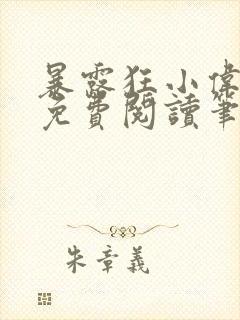 暴露狂小偉
免費閱讀筆
朱章義